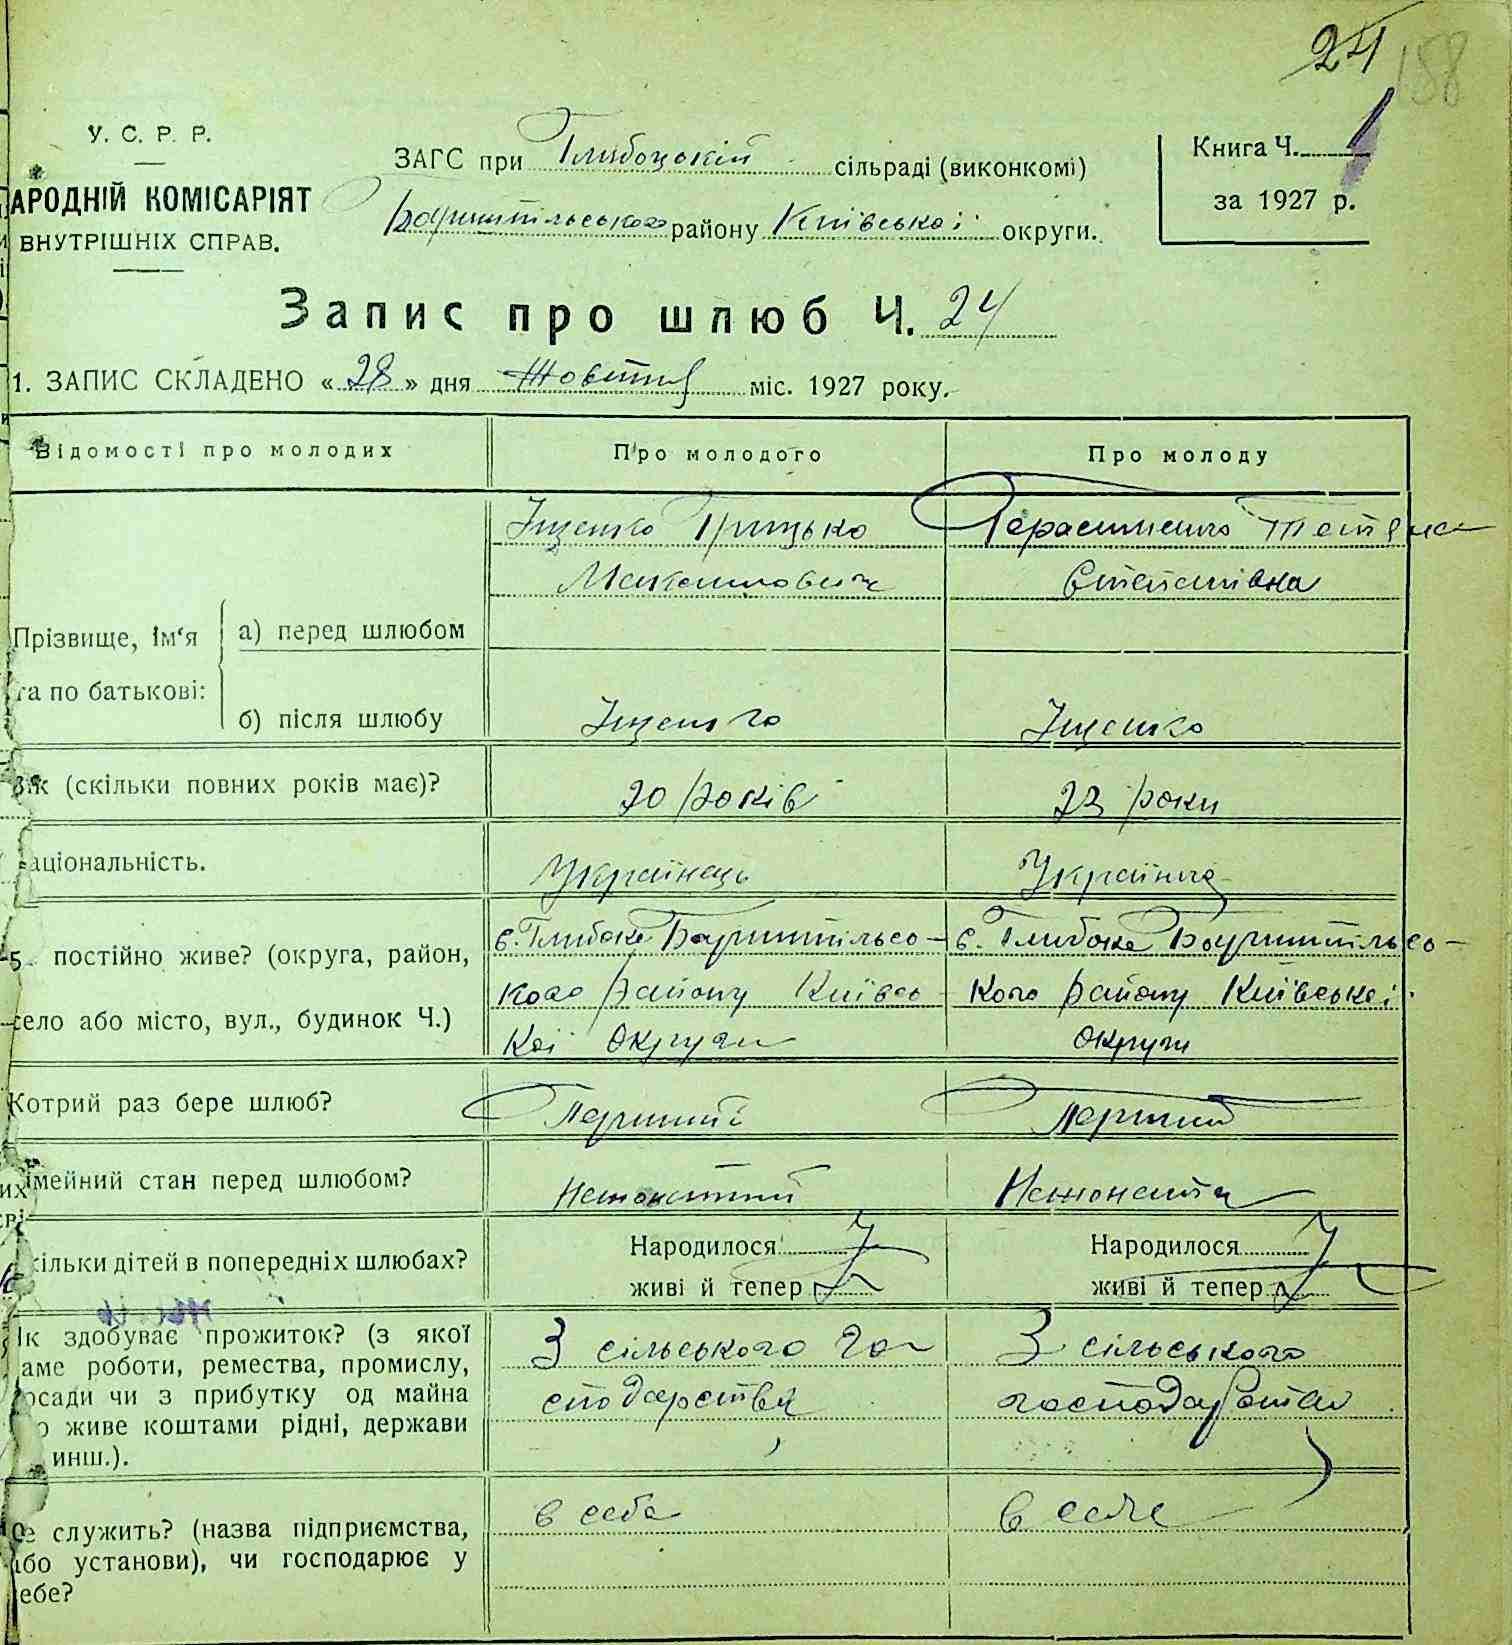 24 158
У. С. Р. Р.
АРОДНІЙ КОМІСАРІЯТ
ВНУТРІШНІХ СПРАВ.
ЗАГС при Глибоцькій сільраді (виконкомі)
Баришпільського району Київської округи.
Книга Ч. 1
за 1927 р.
Запис про шлюб Ч. 24
1. ЗАПИС СКЛАДЕНО « 28 » дня Жовтня міс. 1927 року.
Відомості про молодих Про молодого Про молоду
Іщенко Грицько Герасименко Тетяна
Максимович Степанівна
Прізвище, ім'я та по батькові:
а) перед шлюбом
б) після шлюбу Іщенко Іщенко
Вік (скільки повних років має)? 20 років 23 роки
аціональність. Українець Українка
5. постійно живе? (округа, район, село або місто, вул., будинок Ч.)
с. Глибоке Баришпільсь- с. Глибоке Баришпільсь-
кого району Київсь- кого району Київської
кої округи округи
Котрий раз бере шлюб? Перший Перший
імейний стан перед шлюбом? Нежонатий Нежоната
кільки дітей в попередніх шлюбах? Народилося Народилося
живі й тепер живі й тепер
Як здобуває прожиток? (з якої З сільського го- З сільського
аме роботи, ремества, промислу,
осади чи з прибутку од майна сподарства господарства
о живе коштами рідні, держави
инш.).
Де служить? (назва підприємства, в себе в себе
або установи), чи господарює у
ебе?